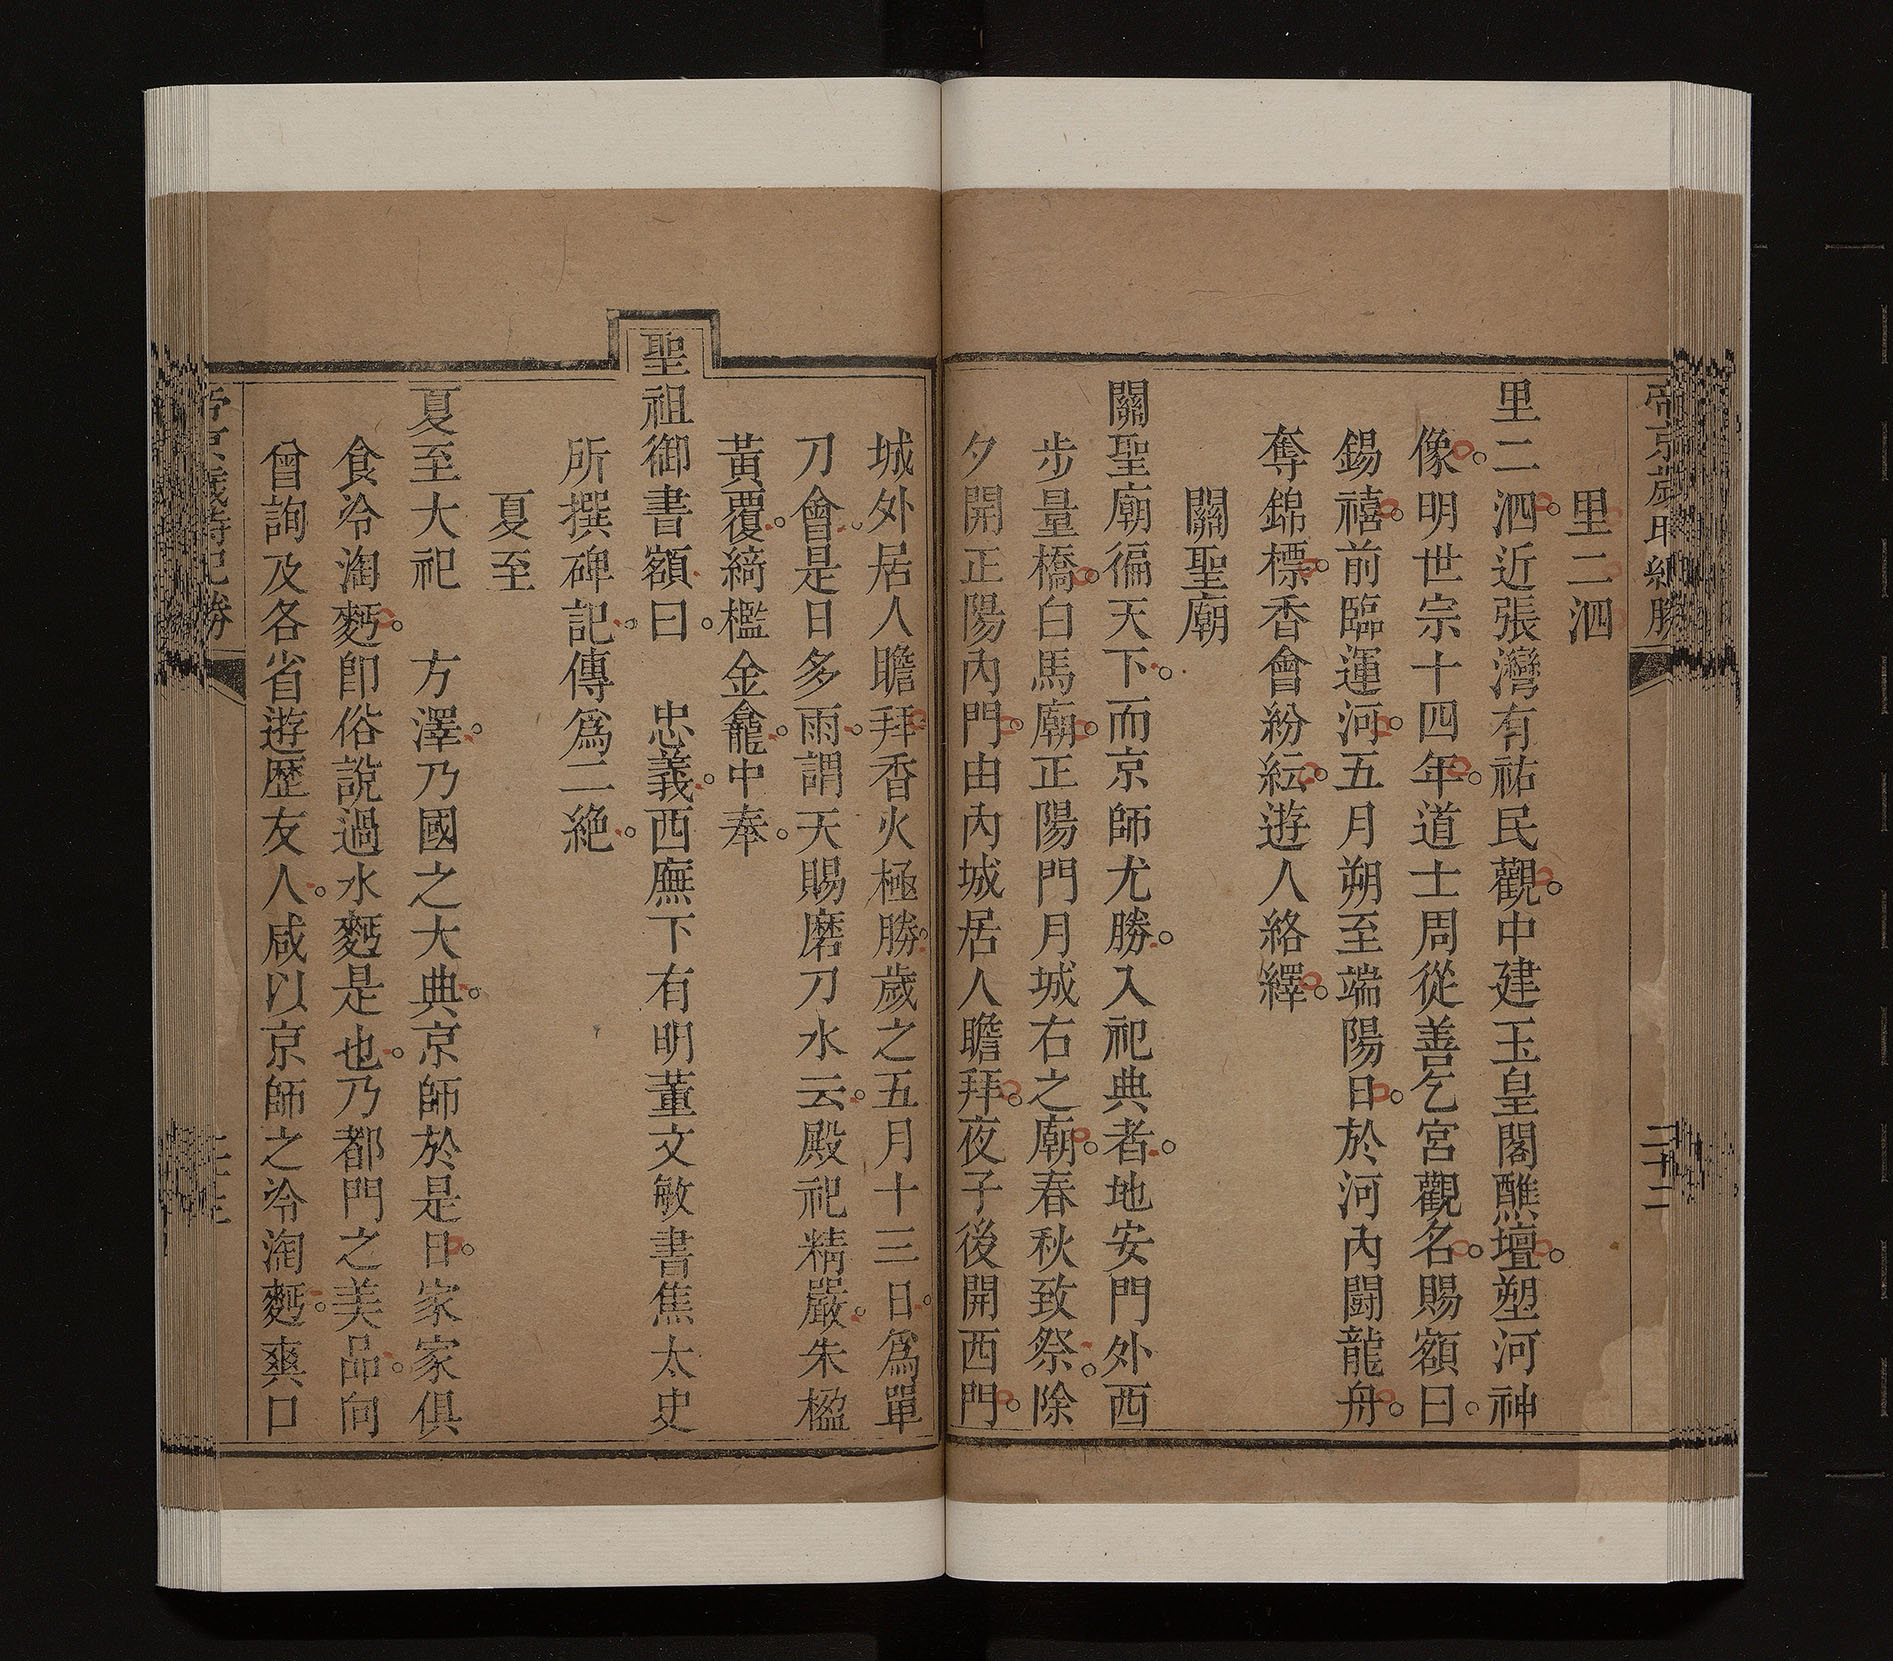 里二泗
里二泗近張灣有祐民觀中建玉皇閣醮壇塑河神
像明世宗十四年道士周從善乞宮觀名賜額曰
錫禧前臨運河五月朔至端陽日於河內鬪龍舟
奪錦標香會紛紜遊人絡繹
關聖廟
關聖廟徧天下而京師尤勝入祀典者地安門外西
步量橋白馬廟正陽門月城右之廟春秋致祭除
夕開正陽內門由內城居人瞻拜夜子後開西門
城外居人瞻拜香火極勝歲之五月十三日爲單
刀會是日多雨謂天賜磨刀水云殿祀精嚴朱楹
黃覆綺檻金龕中奉
聖祖御書額曰 忠義西廡下有明董文敏書焦太史
所撰碑記傳爲二絕
夏至
夏至大祀 方澤乃國之大典京師於是日家家俱
食冷淘麪即俗說過水麪是也乃都門之美品向
曾詢及各省遊歷友人咸以京師之冷淘麪爽口